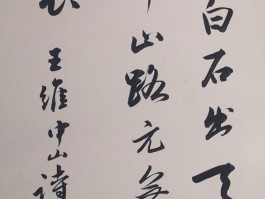 白石出天
山路元無
王維中山詩